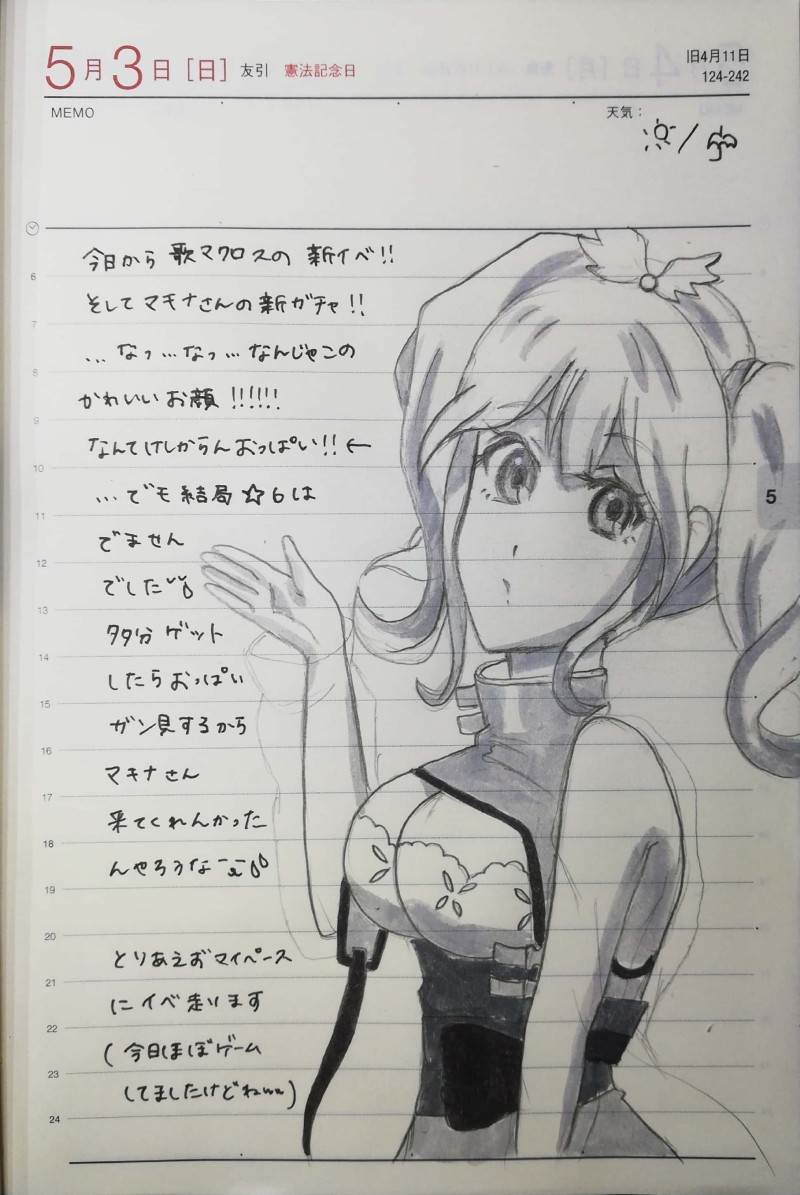 5月3日[日] 友引 憲法記念日
旧4月11日
124-242
MEMO
天気：
今日から 歌マクロスの 新イベ!!
そして マキナさんの 新ガチャ!!
…なっ…なっ…なんじゃこの
かわいい お顔!!!!!!
なんてけしからんおっぱい!! ←
…でモ 結局☆6は
でません
でした
多分 ゲット
したらおっぱい
ガン見するから
マキナさん
来てくれんかった
んやろうな
とりあえずマイペース
に イベ 走ります
(今日ほぼゲーム
してましたけどねww)
6
7
8
9
10
11
12
13
14
15
16
17
18
19
20
21
22
23
24
5